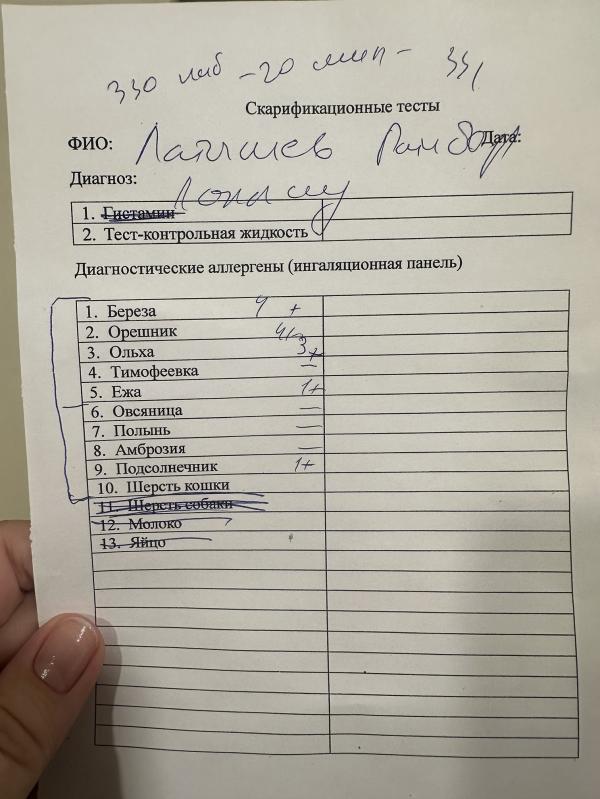 330 каб - 20 мин -
Скарификационные тесты
ФИО: Латышев Дата:
Диагноз:
1. Гистамин
2. Тест-контрольная жидкость
Диагностические аллергены (ингаляционная панель)
1. Береза 4 +
2. Орешник 4+
3. Ольха 3+
4. Тимофеевка —
5. Ежа 1+
6. Овсяница —
7. Полынь —
8. Амброзия —
9. Подсолнечник 1+
10. Шерсть кошки
11. Шерсть собаки
12. Молоко
13. Яйцо